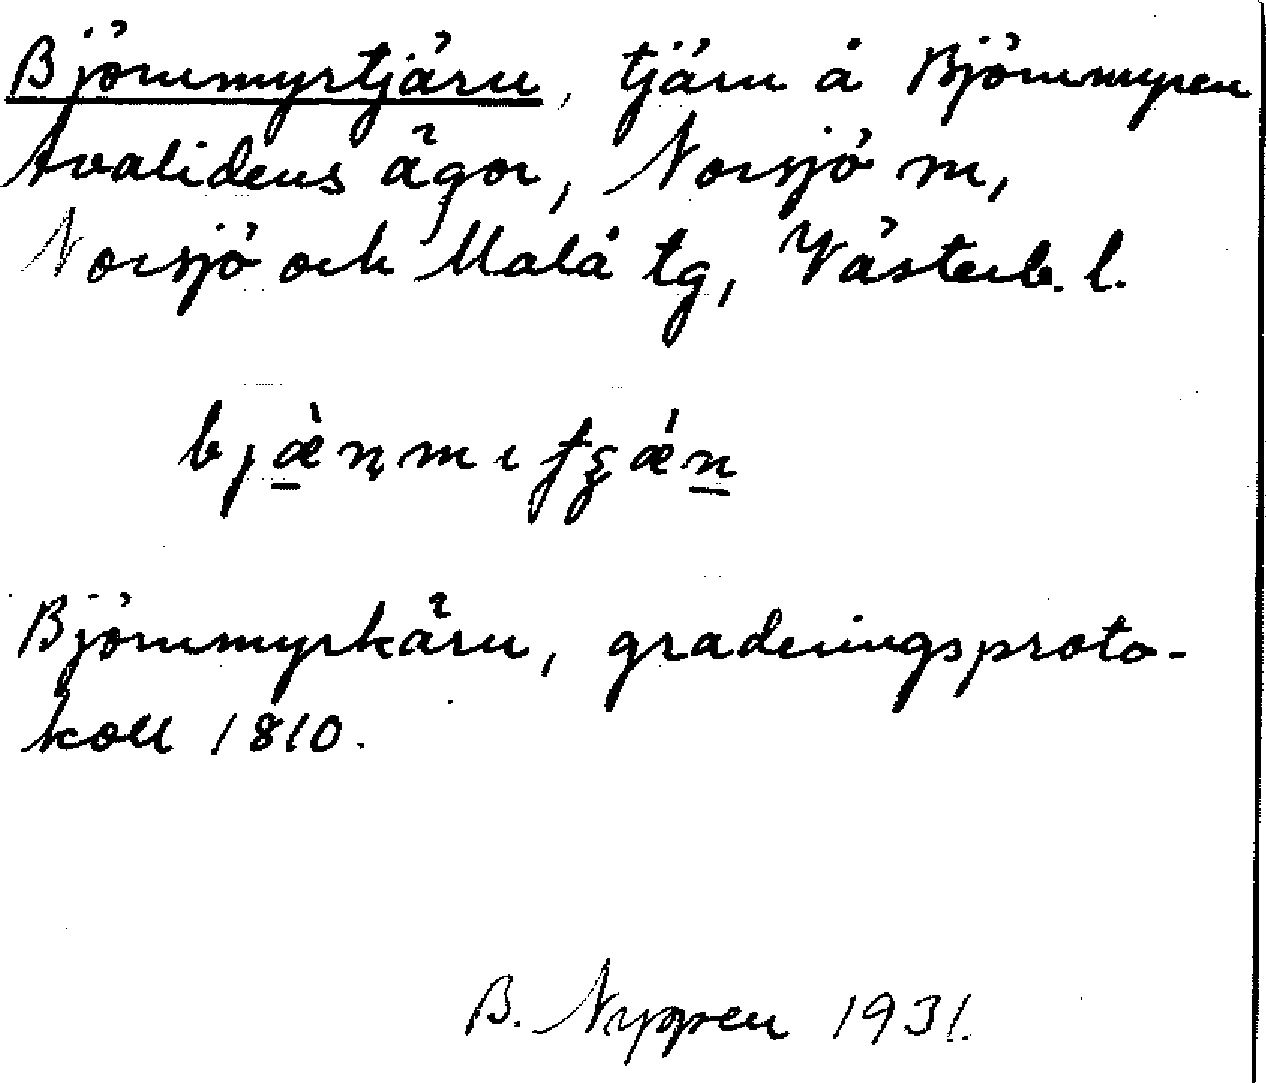 Björnmyrtjärn, tjärn å Björnmyren
Avalidens ägor, Norsjö sn,
Norsjö och Malå tg, Västerb. l.
Björnmyrkärn, graderingsproto-
koll 1810.
B. Nygren 1931.